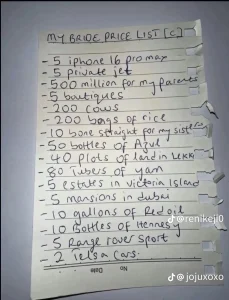 MY BRIDE PRICE LIST [C]
- 5 iphone 16 pro max
- 5 private jet
- 500 million for my parents
- 5 boutiques
- 200 cows
- 200 bags of rice
- 10 bone straight for my sisters
- 50 bottles of Azul
- 40 plots of land in Lekki
- 80 tubers of yam
- 5 estates in Victoria Island
- 5 mansions in dubai
- 10 gallons of Red oil
- 10 bottles of Hennesy
- 5 Range rover sport
- 2 Telsa cars.
@renikejl0
@jojuxoxo
No
Date